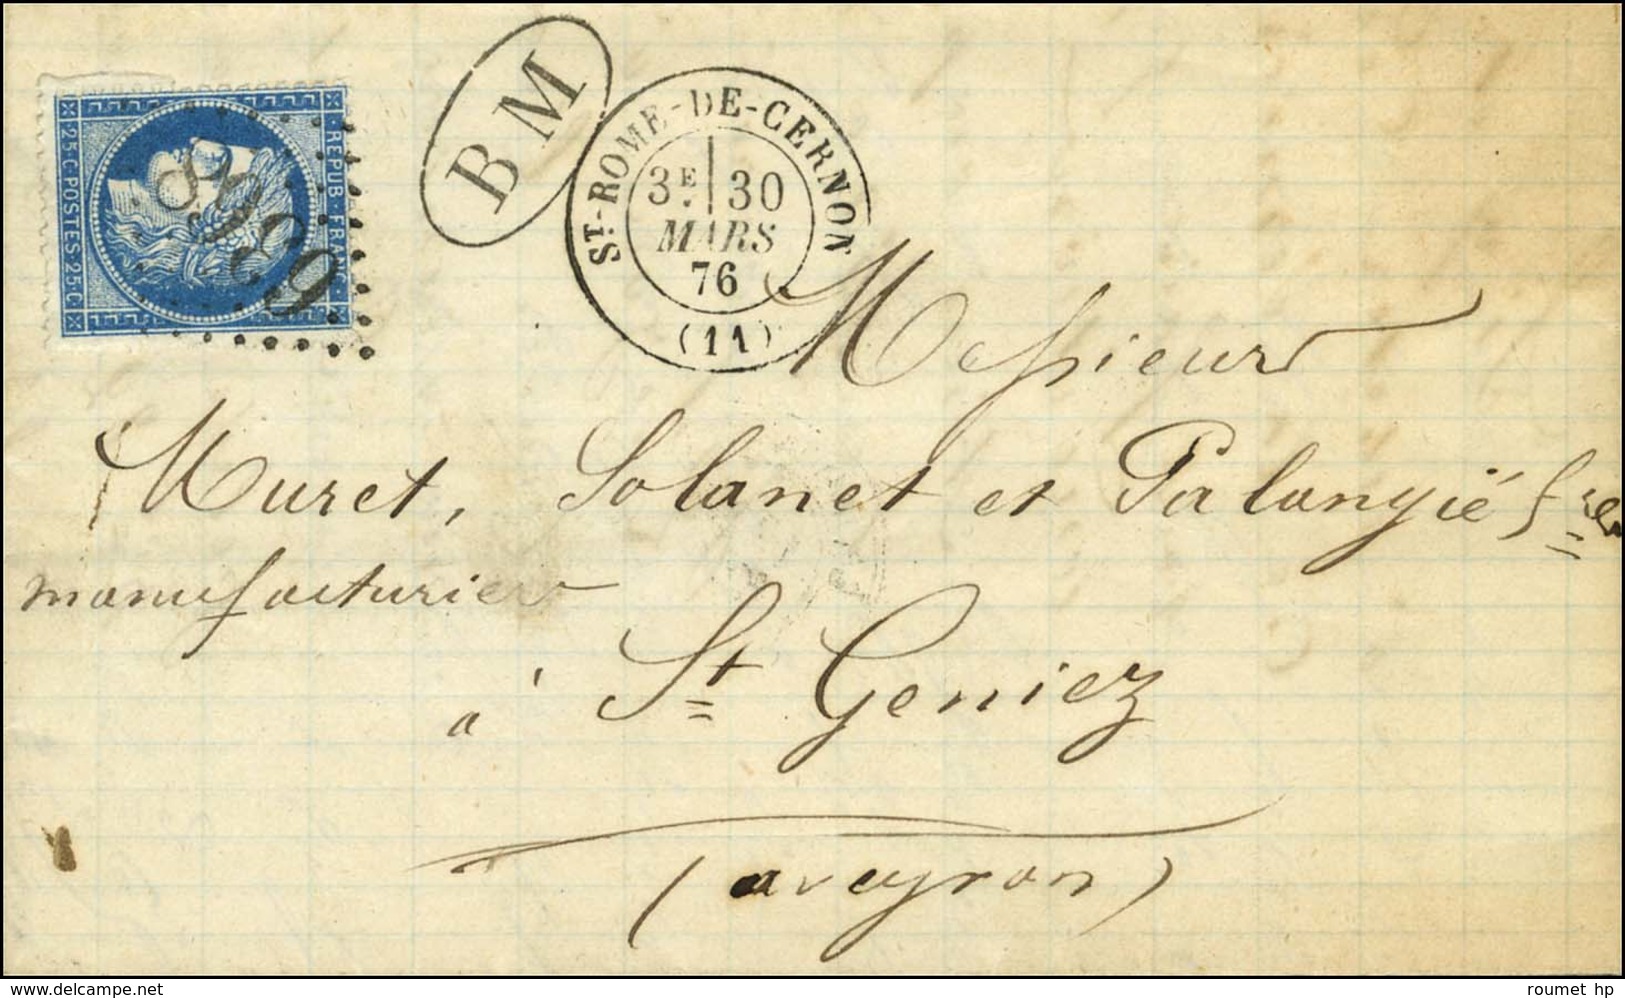 REPUB · FRANC ·
25 · C · POSTES · 25 · C
BM
ST-ROME-DE-CERNON
3E 30
MARS
76
(11)
Messieurs
Muret, Solanet et Palangié fres
manufacturier
à St Geniez
(aveyron)
delcampe.net
roumet hp